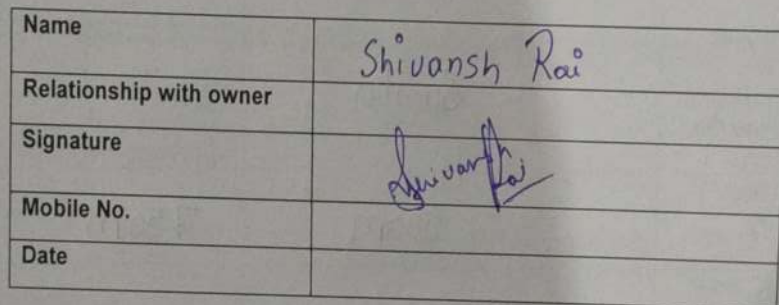 Name Shivansh Rai
Relationship with owner
Signature Shivansh Rai
Mobile No.
Date